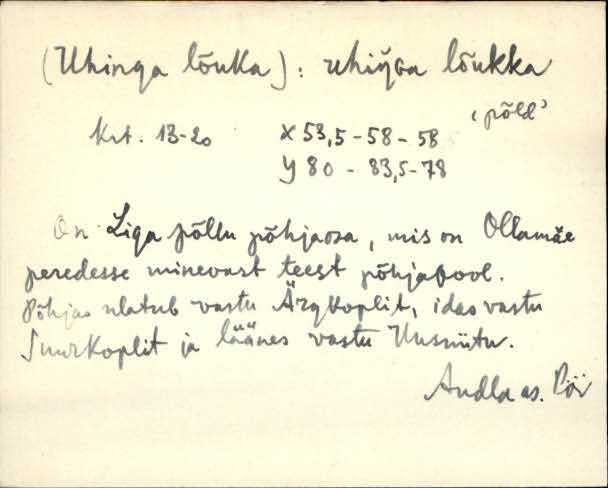 (Uhinga lõuka): uhiŋŋa lõukka
‘põld’
krt. 13-20 X 53,5-58-58
Y 80 - 83,5-78
On Liga põllu põhjaosa, mis on Ollamäe
peredesse minevast teest põhjapool.
Põhjas ulatub vastu Ärgkoplit, idas vastu
Suurkoplit ja läänes vastu Uusniitu.
Andla as. Pöi